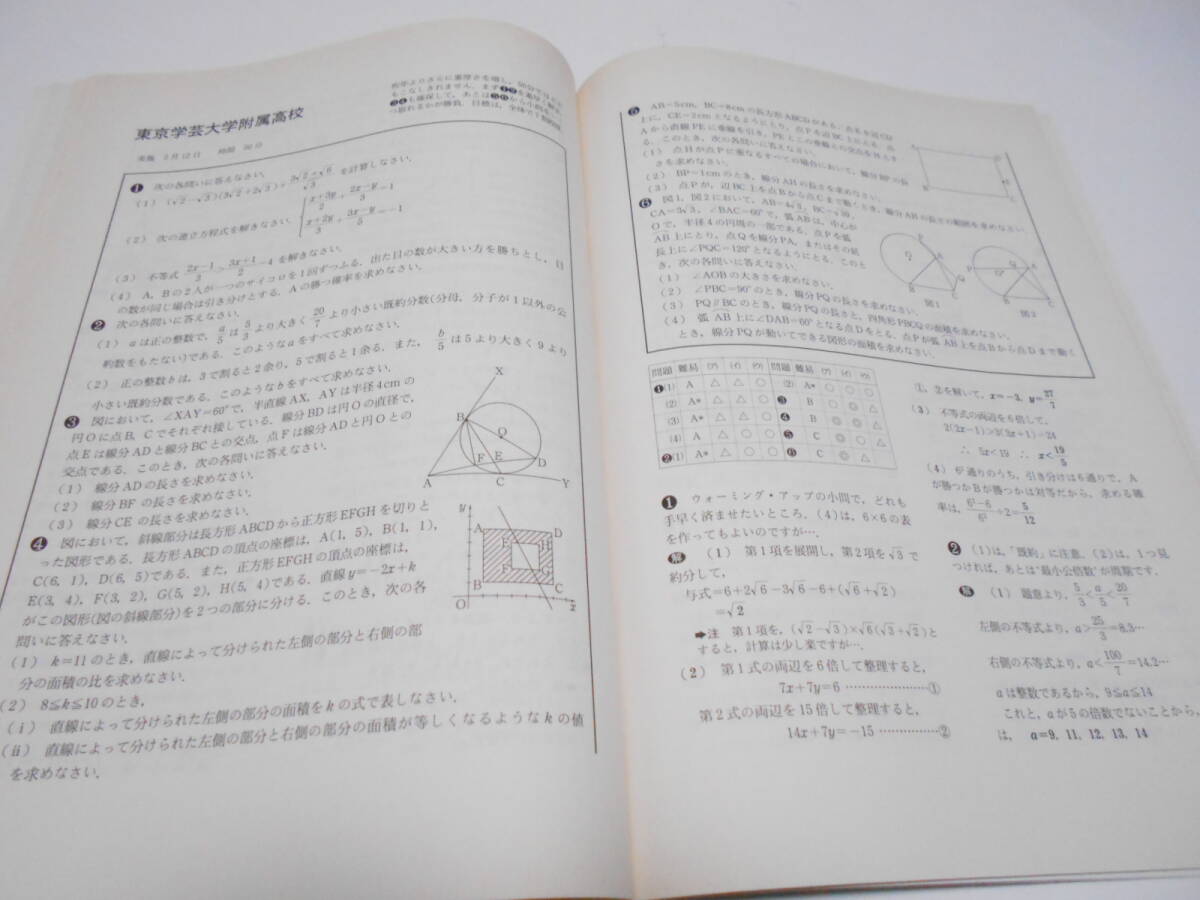 東京学芸大学附属高校
実施 2月12日 時間 50分
❶ 次の各問いに答えなさい.
(1) (√2−√3)(3√2+2√3)+(3√2+√6)/√3 を計算しなさい.
(2) 次の連立方程式を解きなさい.
(x+3y)/2+(2x−y)/3=1
(x+2y)/3+(3x−y)/5=−1
(3) 不等式 (2x−1)/3>(3x+1)/2−4 を解きなさい.
(4) A, Bの2人が一つのサイコロを1回ずつふる. 出た目の数が大きい方を勝ちとし, 目
の数が同じ場合は引き分けとする. Aの勝つ確率を求めなさい.
❷ 次の各問いに答えなさい.
(1) aは正の整数で, a/5 は 5/3 より大きく 20/7 より小さい既約分数(分母, 分子が1以外の公
約数をもたない)である. このようなaをすべて求めなさい.
(2) 正の整数bは, 3で割ると2余り, 5で割ると1余る. また, b/5 は5より大きく9より
小さい既約分数である. このようなbをすべて求めなさい.
❸ 図において, ∠XAY=60°で, 半直線AX, AYは半径4cmの
円Oに点B, Cでそれぞれ接している. 線分BDは円Oの直径で,
点Eは線分ADと線分BCとの交点, 点Fは線分ADと円Oとの
交点である. このとき, 次の各問いに答えなさい.
(1) 線分ADの長さを求めなさい.
(2) 線分BFの長さを求めなさい.
(3) 線分CEの長さを求めなさい.
X
B
O
F
E
D
A
C
Y
❹ 図において, 斜線部分は長方形ABCDから正方形EFGHを切りと
った図形である. 長方形ABCDの頂点の座標は, A(1, 5), B(1, 1),
C(6, 1), D(6, 5)である. また, 正方形EFGHの頂点の座標は,
E(3, 4), F(3, 2), G(5, 2), H(5, 4)である. 直線y=−2x+k
がこの図形(図の斜線部分)を2つの部分に分ける. このとき, 次の各
問いに答えなさい.
(1) k=11のとき, 直線によって分けられた左側の部分と右側の部
分の面積の比を求めなさい.
(2) 8≦k≦10のとき,
(i) 直線によって分けられた左側の部分の面積をkの式で表しなさい.
(ii) 直線によって分けられた左側の部分と右側の部分の面積が等しくなるようなkの値
を求めなさい.
y
A
D
E
H
F
B
C
O
x
❺ AB=5cm, BC=8cmの長方形ABCDがある. 点Eを辺CD
上に, CE=2cmとなるようにとり, 点Pを辺BC上にとる. 点
Aから直線PEに垂線を引き, PEとこの垂線との交点をHとす
る. このとき, 次の各問いに答えなさい.
(1) 点Hが点Pに重なるすべての場合において, 線分BPの長
さを求めなさい.
(2) BP=1cmのとき, 線分AHの長さを求めなさい.
(3) 点Pが, 辺BC上を点Bから点Cまで動くとき, 線分AHの長さの範囲を求めなさい.
❻ 図1, 図2において, AB=4√3, BC=√39,
CA=3√3, ∠BAC=60°で, 弧ABは, 中心が
Oで, 半径4の円周の一部である. 点Pを弧
AB上にとり, 点Qを線分PA, またはその延
長上に∠PQC=120°となるようにとる. このと
き, 次の各問いに答えなさい.
(1) ∠AOBの大きさを求めなさい.
(2) ∠PBC=90°のとき, 線分PQの長さを求めなさい.
(3) PQ∥BCのとき, 線分PQの長さと, 四角形PBCQの面積を求めなさい.
(4) 弧AB上に∠DAB=60°となる点Dをとる. 点Pが弧AB上を点Bから点Dまで動く
とき, 線分PQが動いてできる図形の面積を求めなさい.
図1
図2
問題 難易 (ｱ) (ｲ) (ｳ) 問題 難易 (ｱ) (ｲ) (ｳ)
❶(1) A △ △ ○ (2) A* ○ ○ ○
(2) A* △ △ ○ ❸ B ○ ◎ △
(3) A* △ △ ○ ❹ B ◎ ◎ △
(4) A △ ○ ○ ❺ C ○ ○ △
❷(1) A* △ ○ ○ ❻ C ◎ △
❶ ウォーミング・アップの小問で, どれも
手早く済ませたいところ. (4)は, 6×6の表
を作ってもよいのですが…
解 (1) 第1項を展開し, 第2項を√3で
約分して,
与式=6+2√6−3√6−6+(√6+√2)
=√2
➡注 第1項を, (√2−√3)×√6(√3+√2)と
すると, 計算は少し楽ですが….
(2) 第1式の両辺を6倍して整理すると,
7x+7y=6 ………………①
第2式の両辺を15倍して整理すると,
14x+7y=−15 ……………②
①, ②を解いて, x=−3, y=27/7
(3) 不等式の両辺を6倍して,
2(2x−1)>3(3x+1)−24
∴ 5x<19 ∴ x<19/5
(4) 6²通りのうち, 引き分けは6通りで, A
が勝つかBが勝つかは対等だから, 求める確
率は, (6²−6)/6²÷2=5/12
❷ (1)は, 「既約」に注意. (2)は, 1つ見
つければ, あとは“最小公倍数”が周期です.
解 (1) 題意より, 5/3<a/5<20/7
左側の不等式より, a>25/3=8.3…
右側の不等式より, a<100/7=14.2…
aは整数であるから, 9≦a≦14
これと, aが5の倍数でないことから,
は, a=9, 11, 12, 13, 14